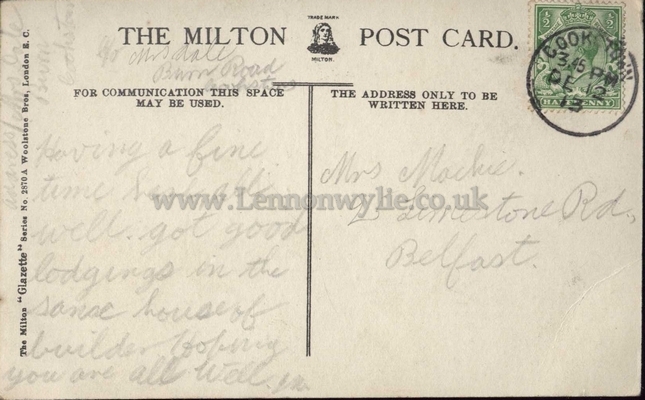 THE MILTON POST CARD.
TRADE MARK
MILTON.
c/o Mrs Dale
Burn Road
FOR COMMUNICATION THIS SPACE
MAY BE USED.
THE ADDRESS ONLY TO BE
WRITTEN HERE.
Having a fine
time
well. got good
lodgings in the
same house of
builder hoping
you are all well.
Mrs Mackie.
2 Limestone Rd.,
Belfast.
COOKSTOWN
3.45 PM
DE 12
13
HALF PENNY
The Milton "Glazette" Series No. 2870A Woolstone Bros, London E.C.
address Mrs Dale
Burn
www.Lennonwylie.co.uk